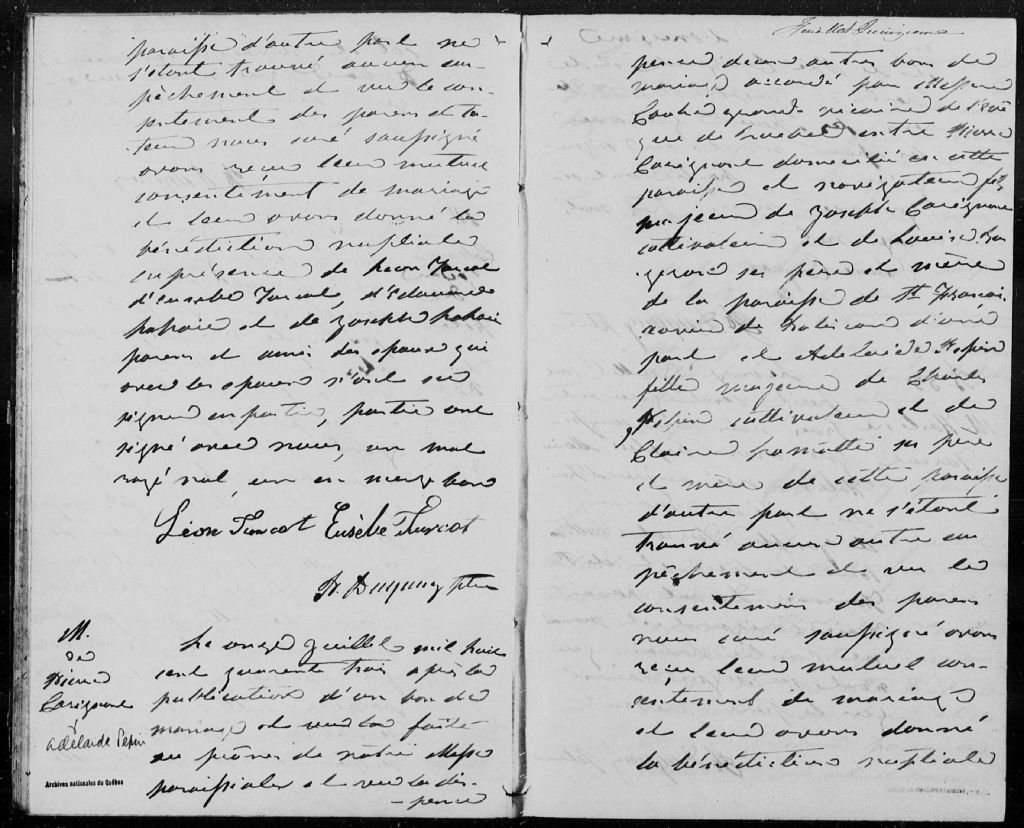 paroisse d'autre part ne
s'étant trouvé aucun em-
pêchement et vu le con-
sentement des parens et tu-
teur nous curé soussigné
avons reçu leur mutuel
consentement de mariage
et leur avons donné la
bénédiction nuptiale
en présence de Léon Turcot
d'Eusebe Turcot, d'Edouard
et de Joseph
parens et amis des époux qui
avec les époux n'ont su
signer en partie, partie ont
signé avec nous, un mot
rayé nul, un en marge bon
Léon Turcot Eusèbe Turcot
Dupuy ptre
M.
de
Pierre
Carignant
&
adelaide Pepin
Le onze juillet mil huit
cent quarante trois après la
publication d'un ban de
mariage et vu la faite
au prônes de notre Messe
paroissiale et vu la dis-
-pense
Archives nationales du Québec
Feuillet Quinzieme
pense deux autres bans de
mariage accordé par Messire
grand vicaire de
de entre Pierre
Carignant domicilié en cette
paroisse et navigateur fils
majeur de Joseph Carignant
cultivateur et de Louise
ses père et mère
de la paroisse de St François
xavier de Batiscan d'une
part et Adelaide Pepin
fille majeure de Charles
Pepin cultivateur et de
Claire ses père
et mère de cette paroisse
d'autre part ne s'étant
trouvé aucun autre em
pêchement et vu le
consentement des parens
nous curé soussigné avons
reçu leur mutuel con-
sentement de mariage
et leur avons donné
la bénédiction nuptiale